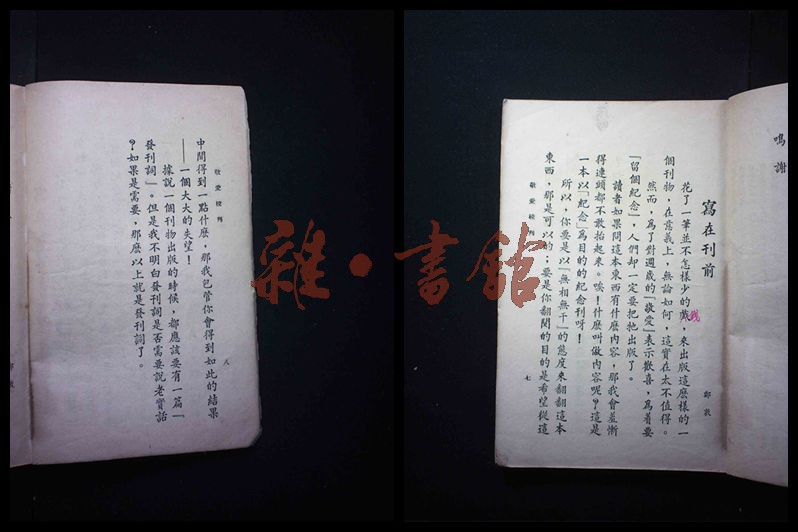 鳴謝
寫在刊前
鄭敦
花了一筆並不怎樣少的錢，來出版這麼樣的一
個刊物，在意義上，無論如何，這實在太不值得。
然而，為了對週歲的「敬愛」表示歡喜，為着要
「留個紀念」，人們却一定要把牠出版了。
讀者如果問這本東西有什麼內容，那我會羞慚
得連頭都不敢抬起來。唉！什麼叫做內容呢？這是
一本以「紀念」為目的的紀念刊呀！
所以，你要是以「無相無干」的態度來翻翻這本
東西，那是可以的；要是你翻閱的目的是希望從這
敬愛校刊
七
敬愛校刊
八
中間得到一點什麼，那我包管你會得到如此的結果
——一個大大的失望！
據說一個刊物出版的時候，都應該要有一篇「
發刊詞」。但是我不明白發刊詞是否需要說老實話
？如果是需要，那麼以上就是發刊詞了。
雜·書館